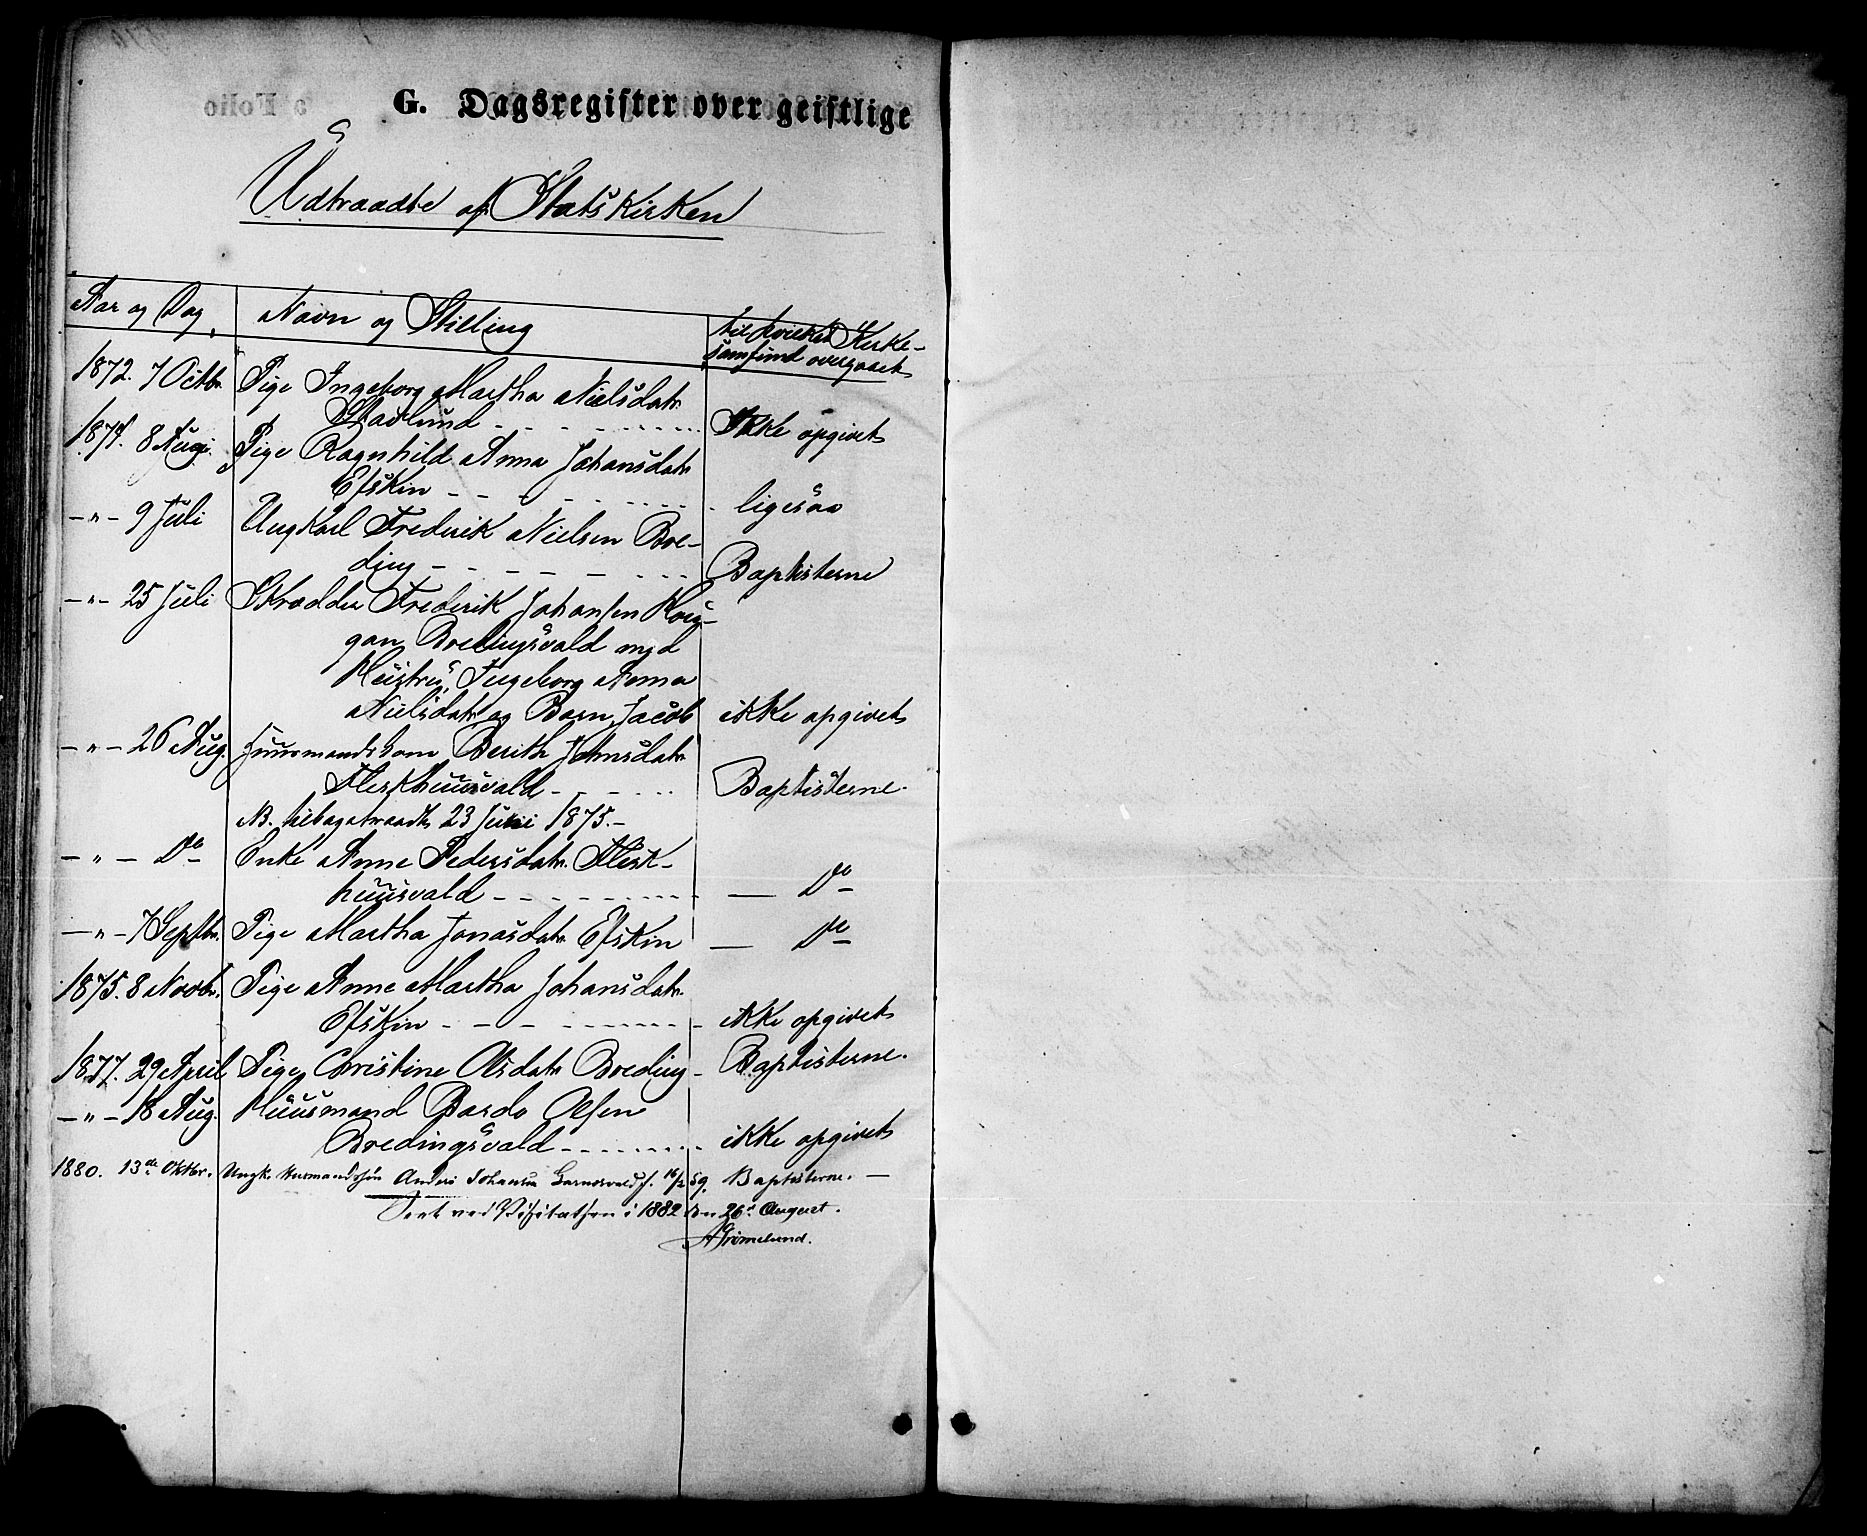 G. Dagsregister over geistlige
Udtraadte af Statskirken
Aar og Dag, Navn og Stilling til hvilket Kirke-
samfund overgaaet
1872. 7 Octbr. Pige Ingeborg Martha Nielsdatr.
Stavlund - - - - - - - - - Ikke opgivet
1874. 8 Aug. Pige Ragnhild Anna Johansdatr
Efskin - - - - - - - - - ligesaa
-"- 9 Juli Ungkarl Frederik Nielsen Bre-
ding - - - - - - - - Baptisterne
-"- 25 Juli Skrædder Frederik Johansen
Bredingsvald med
Hustru Ingeborg Anna
Nielsdatr og Barn Jacob ikke opgivet
-"- 26 Aug. Huusmandskone Berith Johnsdatr
Fleskhuusvald - - - - - Baptisterne.
NB. tilbagetraadt 23 Juni 1875. -
-"- Do Enke Anne Pedersdatr. Flesk-
huusvald - - - - - - - - - — Do
-"- 7 Septbr. Pige Martha Jonasdatr. Efskin — Do
1875. 8 Novbr. Pige Anne Martha Johansdatr.
Efskin - - - - - - - - - ikke opgivet
1877. 29 April Pige Christine Olsdatr Breding - Baptisterne.
-"- 18 Aug. Huusmand Bardo Olsen
Bredingsvald - - - - - - - - ikke opgivet
1880. 13de Oktbr. Ungk. Husmandssøn Anders Johansen f. 16/2 59. Baptisterne. —
Seet ved Visitatsen i 1882 den 26de August.
AGrimelund.